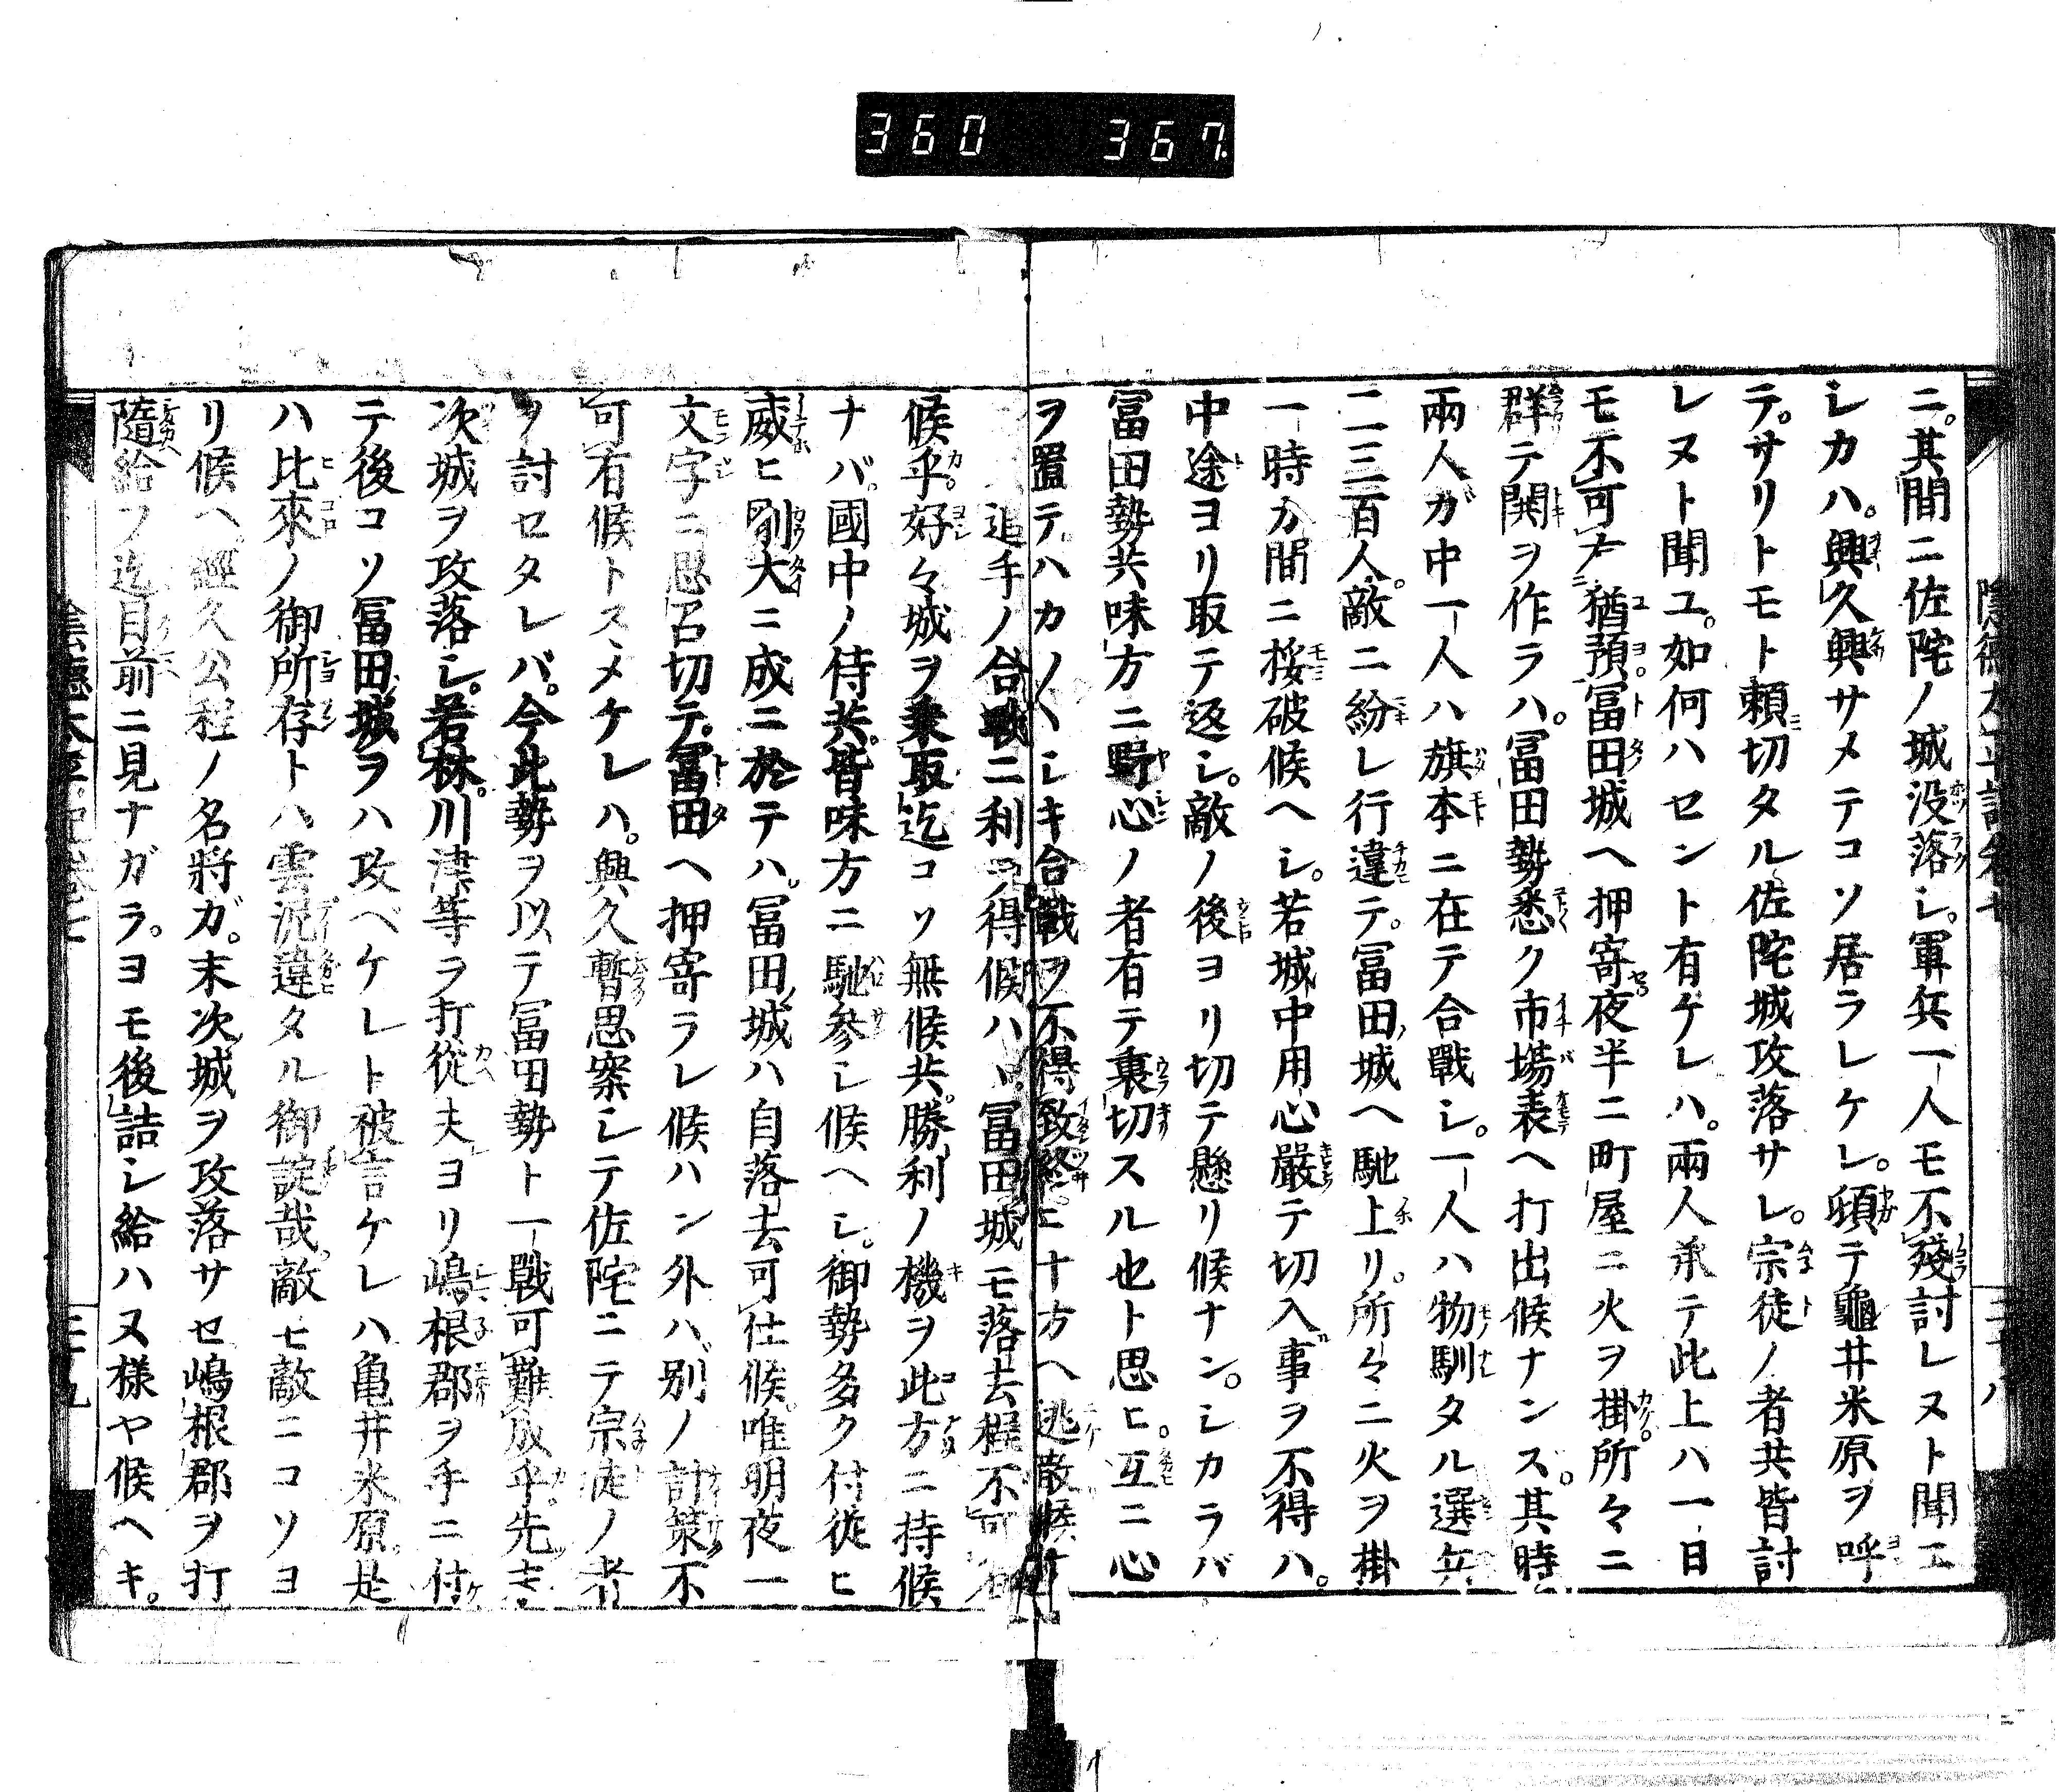 360 367
ニ。其間ニ佐陀ノ城没落シ。軍兵一人モ不殘討レヌト聞エ
シカハ。興久興サメテコソ居ラレケレ。頓テ龜井米原ヲ呼
テ。サリトモト頼切タル佐陀城攻落サレ。宗徒ノ者共皆討
レヌト聞ユ。如何ハセント有ゲレハ。兩人承テ此上ハ一日
モ不可有猶預冨田城ヘ押寄夜半ニ町屋ニ火ヲ掛所々ニ
群テ鬨ヲ作ラハ。冨田勢悉ク市場表ヘ打出候ナンズ。其時
兩人ガ中一人ハ旗本ニ在テ合戰シ。一人ハ物馴タル選兵
二三百人。敵ニ紛レ行違テ。冨田城ヘ馳上リ。所々ニ火ヲ掛
一時カ間ニ挼破候ヘシ。若城中用心嚴テ切入事ヲ不得ハ。
中途ヨリ取テ返シ。敵ノ後ヨリ切テ懸リ候ナン。シカラバ
冨田勢共味方ニ野心ノ者有テ裏切スル也ト思ヒ。互ニ心
ヲ置テハカ〱シキ合戰ヲ不得致終ニ十方ヘ逃散候
追手ノ合戰ニ利ヲ得候ハヽ冨田城モ落去程不可有
候乎。好々城ヲ乗取迄コソ無候共。勝利ノ機ヲ此方ニ持候
ナバ。國中ノ侍共。皆味方ニ馳參シ候ヘシ。御勢多ク付従ヒ
威ヒ剛大ニ成ニ於テハ。冨田城ハ自落去可仕候。唯明夜一
文字ニ思召切テ。冨田ヘ押寄ラレ候ハン外ハ。別ノ計策不
可有候トスヽメケレハ。興久暫思案シテ佐陀ニテ宗徒ノ者
ヲ討セタレバ。今此勢ヲ以テ冨田勢ト一戰可難成乎。先末
次城ヲ攻落シ。若林。川津等ラ打從夫ヨリ嶋根郡ヲ手ニ付
テ後コソ冨田城ヲハ攻ベケレト被言ケレハ亀井米原。是
ハ比來ノ御所存トハ雲泥違タル御諚哉。敵モ敵ニコソヨ
リ候ヘ。經久公程ノ名將ガ。末次城ヲ攻落サセ嶋根郡ヲ打
隨給フ迄目前ニ見ナガラ。ヨモ後詰シ給ハヌ様ヤ候ヘキ。